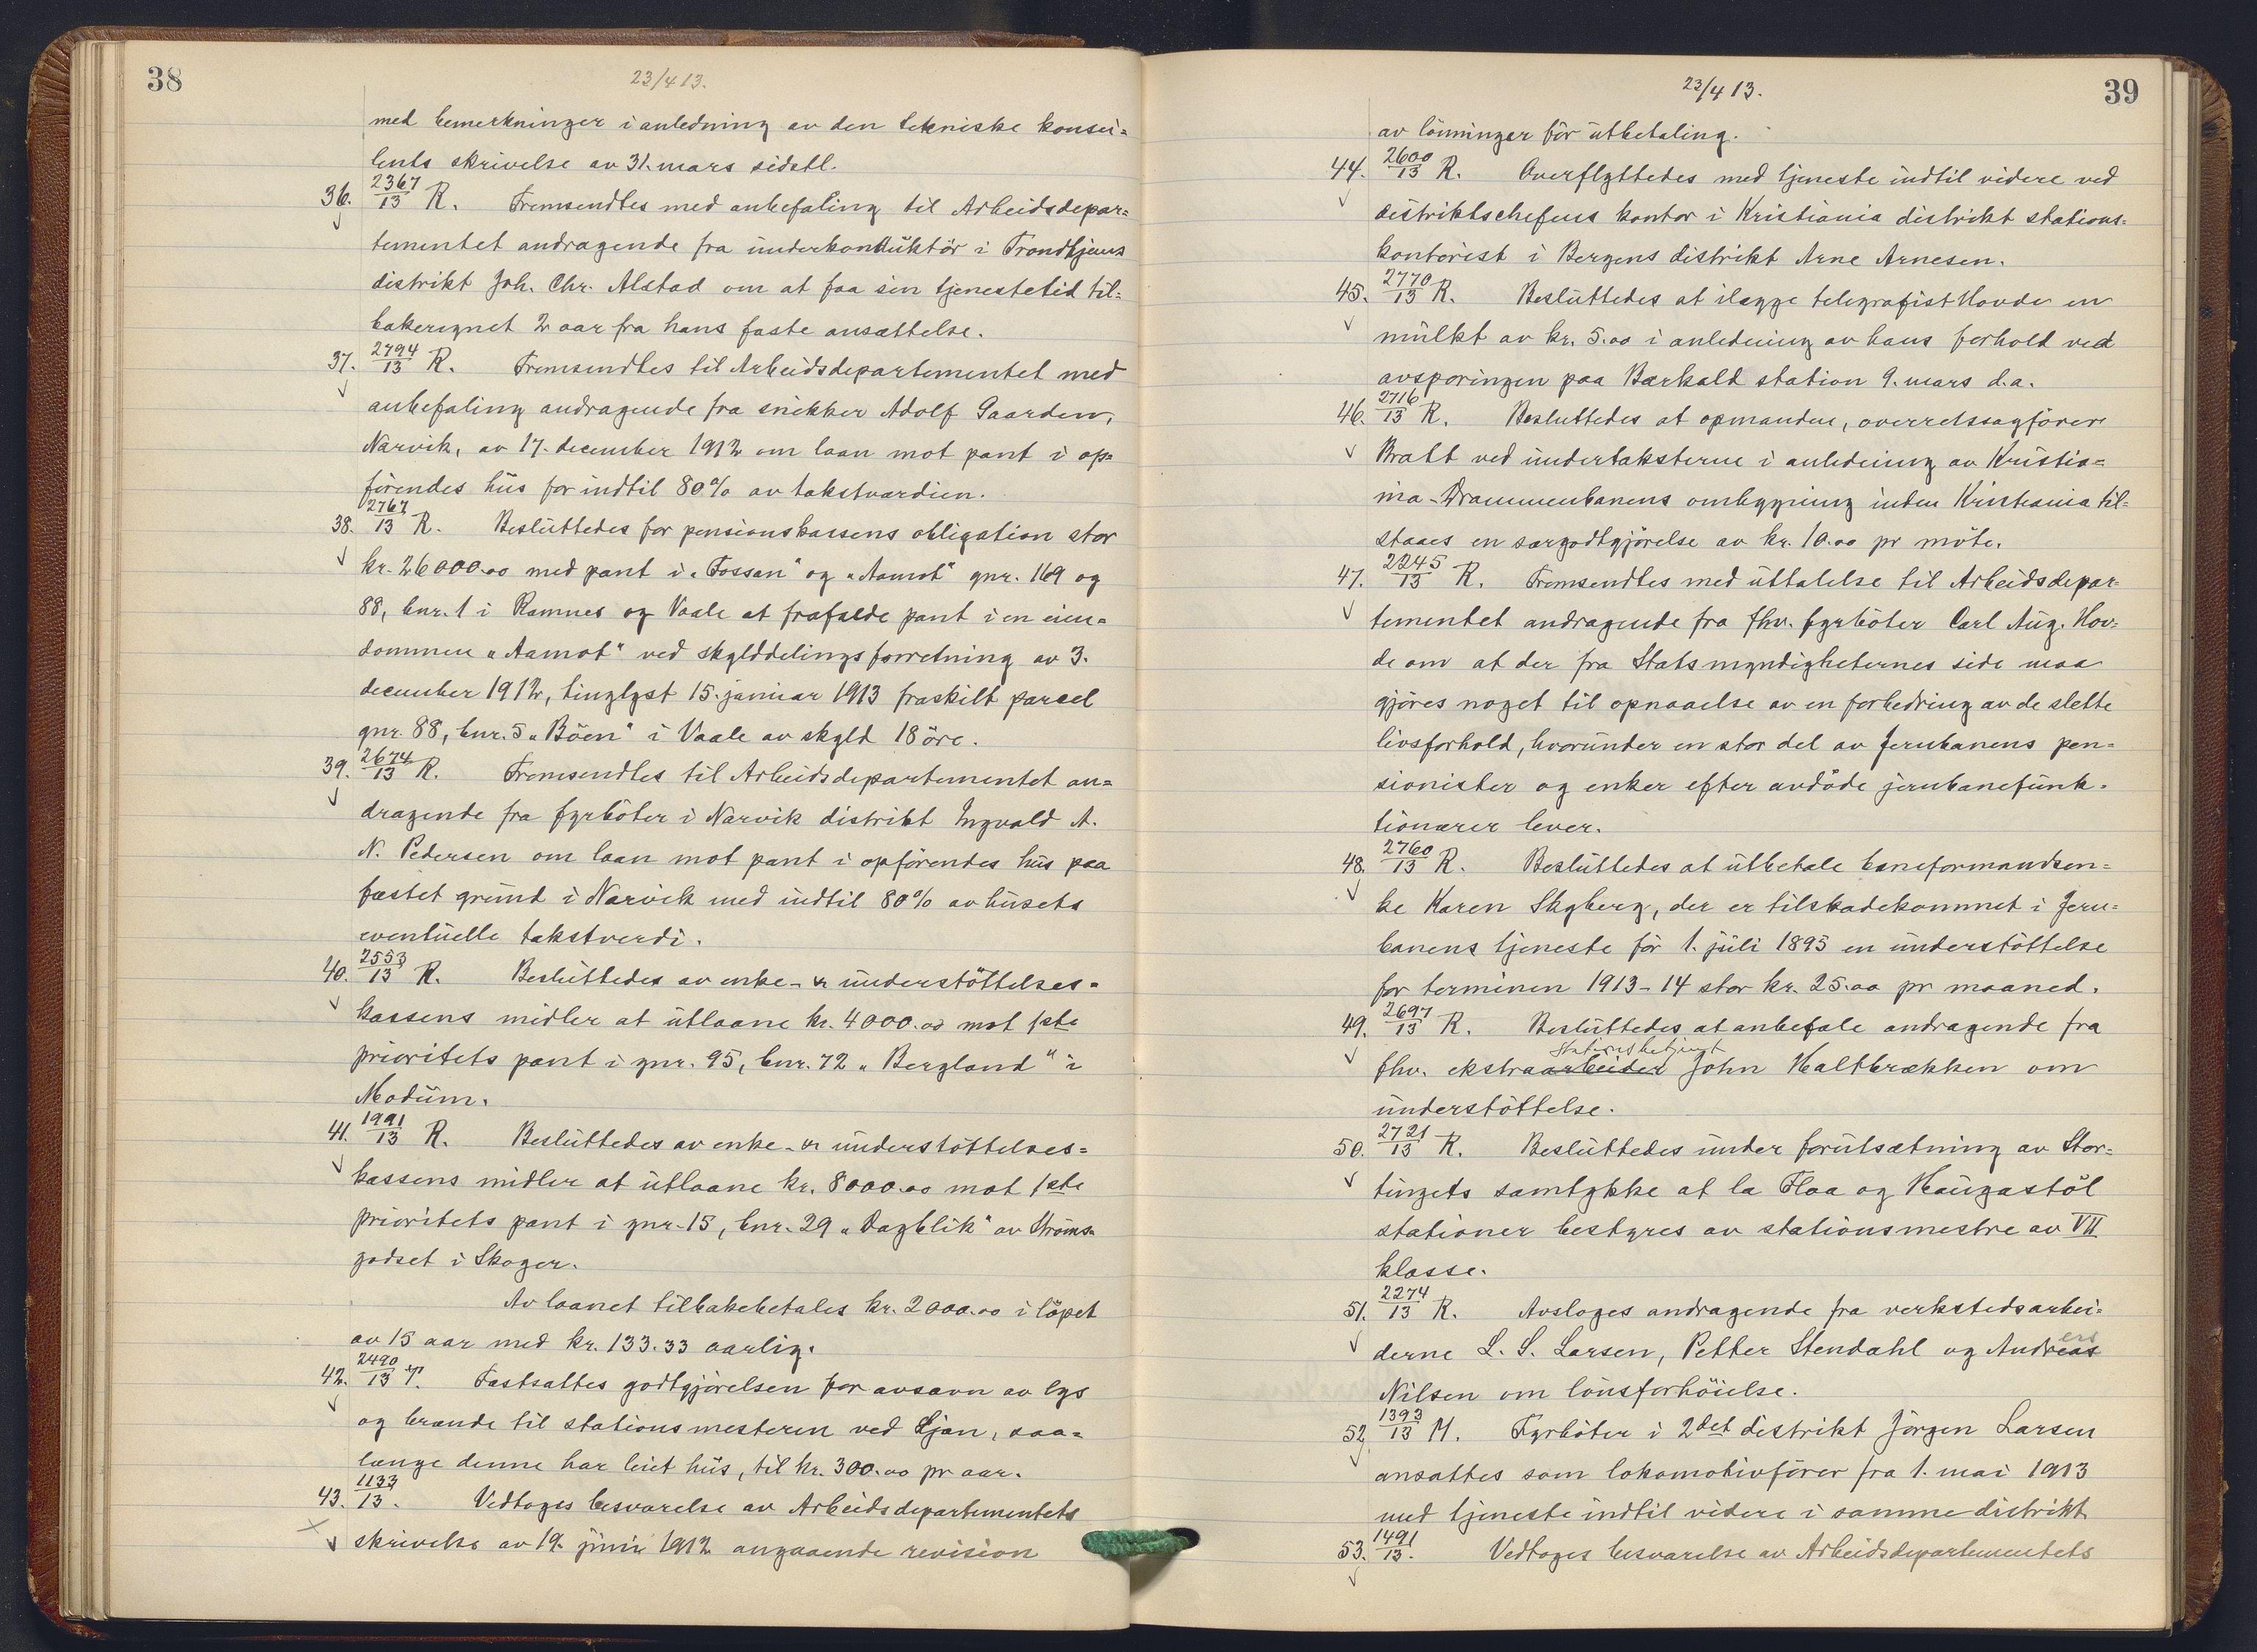 38
23/4 13.
med bemerkninger i anledning av den tekniske konsu=
lents skrivelse av 31. mars sidstl.
36. 2367/13 R. Fremsendtes med anbefaling til Arbeidsdepar=
tementet andragende fra underkonduktör i Trondhjems
distrikt Joh. Chr. Alstad om at faa sin tjenestetid til=
bakeregnet 2 aar fra hans faste ansættelse.
37. 2794/13 R. Fremsendtes til Arbeidsdepartementet med
anbefaling andragende fra snekker Adolf Gaarden,
Narvik, av 17. december 1912 om laan mot pant i op=
förendes hus for indtil 80% av takstværdien.
38. 2767/13 R. Besluttedes for pensionskassens obligation stor
kr. 26000.00 med pant i "Fossan" og "Aamot" gnr. 169 og
88, bnr. 1 i Ramnes og Vaale at frafalde pant i en eien=
dommen "Aamot" ved skylddelingsforretning av 3.
december 1912, tinglyst 15. januar 1913 fraskilt parcel
gnr. 88, bnr. 5 "Böen" i Vaale av skyld 18 öre.
39. 2674/13 R. Fremsendtes til Arbeidsdepartementet an=
dragende fra fyrböter i Narvik distrikt Ingvald A.
N. Pedersen om laan mot pant i opförendes hus paa
fæstet grund i Narvik med indtil 80% av husets
eventuelle takstverdi.
40. 2553/13 R. Besluttedes av enke- & understöttelses=
kassens midler at utlaane kr. 4000.00 mot 1ste
prioritets pant i gnr. 95, bnr. 72 "Bergland" i
Modum.
41. 1991/13 R. Besluttedes av enke- & understöttelses=
kassens midler at utlaane kr. 8000.00 mot 1ste
prioritets pant i gnr. 15, bnr. 29 "Dagblik" av Ströms=
godset i Skoger.
Av laanet tilbakebetales kr. 2000.00 i löpet
av 15 aar med kr. 133.33 aarlig.
42. 2490/13 T. Fastsattes godtgjörelsen for avsavn av lys
og brænde til stationsmesteren ved Ljan, saa=
længe denne har leiet hus, til kr. 300.00 pr aar.
43. 1133/13. Vedtoges besvarelse av Arbeidsdepartementets
skrivelse av 19. juni 1912 angaaende revision
39
23/4 13.
av lönninger för utbetaling.
44. 2600/13 R. Overflyttedes med tjeneste indtil videre ved
distriktschefens kontor i Kristiania distrikt stations=
kontorist i Bergens distrikt Arne Arnesen.
45. 2770/13 R. Besluttedes at ilægge telegrafist Hovde en
mulkt av kr. 5.00 i anledning av hans forhold ved
avsporingen paa Barkald station 9. mars d.a.
46. 2716/13 R. Besluttedes at opmanden, overretssagförer
Bratt ved undertaksterne i anledning av Kristia=
nia-Drammenbanens ombygning inden Kristiania til=
staaes en særgodtgjörelse av kr. 10.00 pr möte.
47. 2245/13 R. Fremsendtes med uttalelse til Arbeidsdepar=
tementet andragende fra fhv. fyrböter Carl Aug. Hov=
de om at der fra Statsmyndigheternes side maa
gjöres noget til opnaaelse av en forbedring av de slette
livsforhold, hvorunder en stor del av Jernbanens pen=
sionister og enker efter avdöde jernbanefunk=
tionærer lever.
48. 2760/13 R. Besluttedes at utbetale baneformandsen=
ke Karen Skyberg, der er tilskadekommet i Jern=
banens tjeneste för 1. juli 1895 en understöttelse
for terminen 1913-14 stor kr. 25.00 pr maaned.
49. 2697/13 R. Besluttedes at anbefale andragende fra
stationsbetjent
fhv. ekstraarbeider John Haltbrækken om
understöttelse.
50. 2721/13 R. Besluttedes under forutsætning av Stor=
tingets samtykke at la Flaa og Haugastöl
stationer bestyres av stationsmestre av VII
klasse.
51. 2274/13 R. Avsloges andragende fra verkstedsarbei=
derne L. S. Larsen, Petter Stendahl og Andreas
ers
Nilsen om lönsforhöielse.
52. 1393/13 M. Fyrböter i 2det distrikt Jörgen Larsen
ansattes som lokomotivförer fra 1. mai 1913
med tjeneste indtil videre i samme distrikt
53. 1491/13. Vedtoges besvarelse av Arbeidsdepartementets